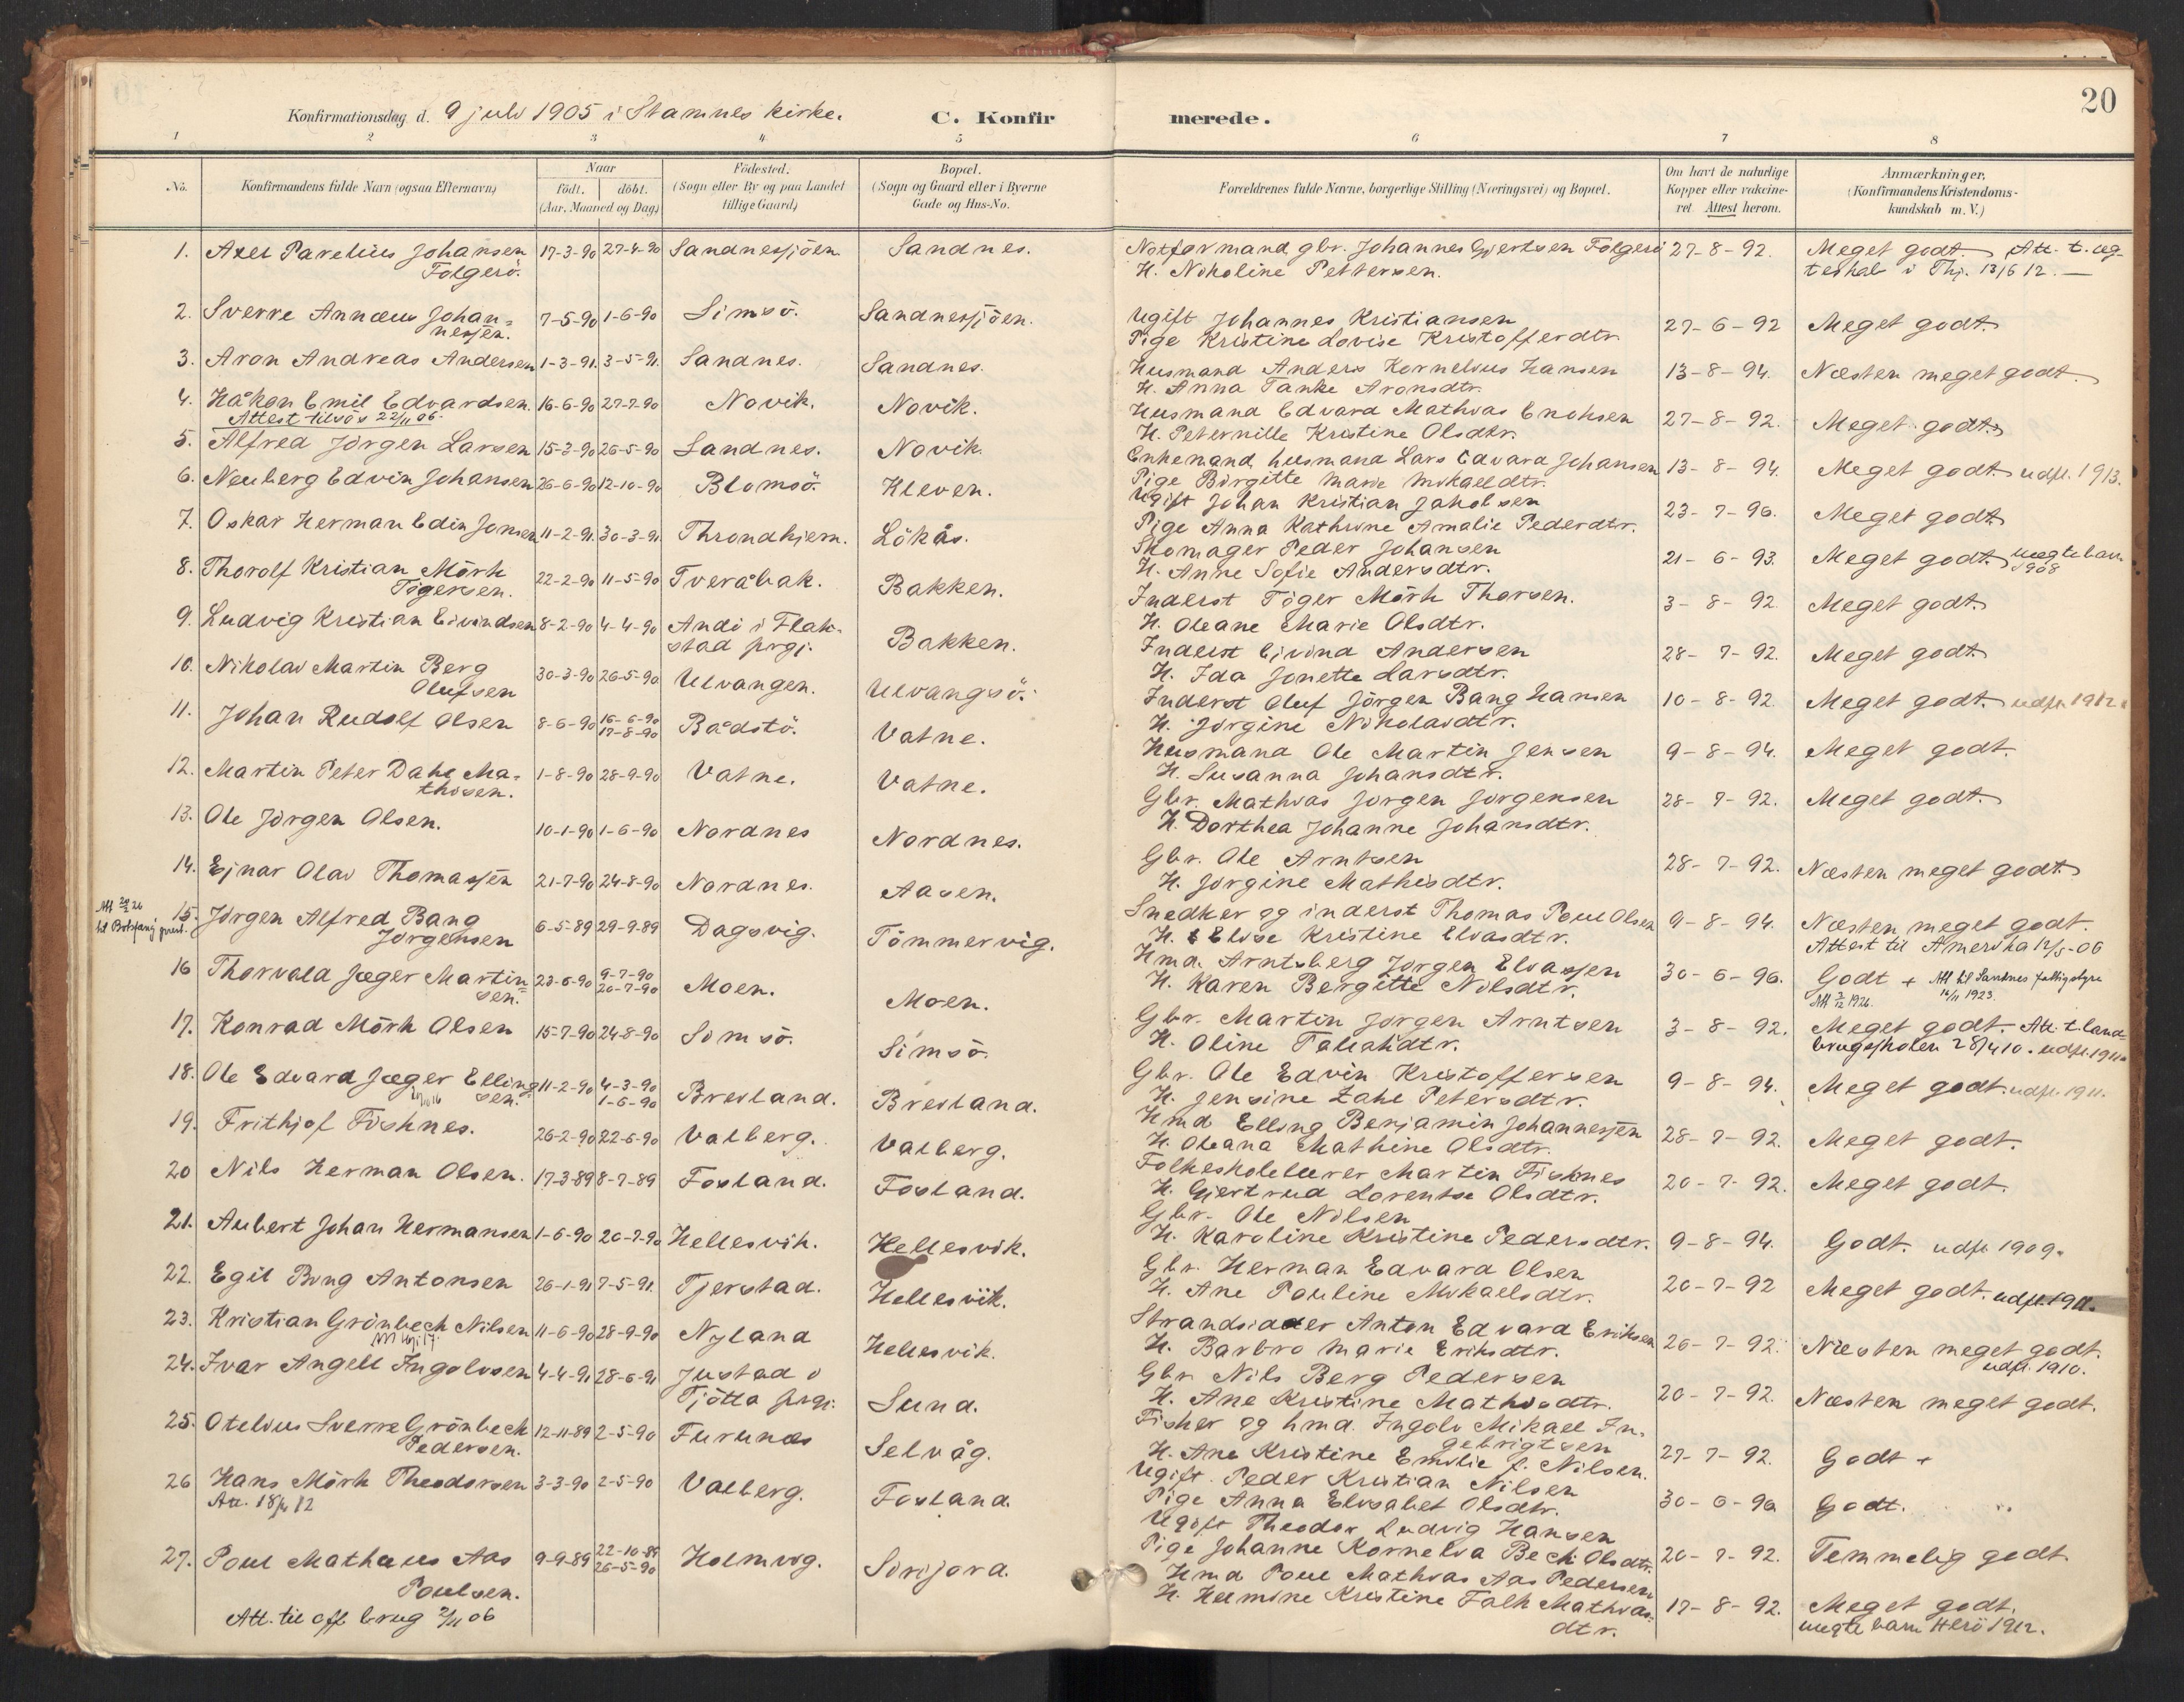 20
Konfirmationsdag d. 9 juli 1905 i Stamnes kirke.
C. Konfirmerede.
1 2 3 4 5 6 7 8
No. Konfirmandens fulde Navn (ogsaa Efternavn) Naar födt. döbt. (Aar, Maaned og Dag) Födested. (Sogn eller By og paa Landet tillige Gaard) Bopæl. (Sogn og Gaard eller i Byerne Gade og Hus-No. Forældrenes fulde Navne, borgerlige Stilling (Næringsvei) og Bopæl. Om havt de naturlige Kopper eller vakcineret. Attest herom. Anmærkninger, (Konfirmandens Kristendomskundskab m. V.)
1. Axel Parelius Johansen Folgerö. 17-3-90 27-4-90 Sandnessjöen Sandnes. Notformand gbr. Johannes Gjertsen Folgerö 27-8-92. Meget godt. Att. t. æg-
H. Nikoline Pettersen. teskab i Thj. 13/6 12.
2. Sverre Annæus Johannessen. 7-5-90 1-6-90 Simsö. Sandnessjöen. Ugift Johannes Kristiansen 27-6-92 Meget godt.
Pige Kristine Lovise Kristofferdtr.
3. Aron Andreas Andersen 1-3-91. 3-5-91. Sandnes. Sandnes. Husmand Anders Kornelius Hansen 13-8-94. Næsten meget godt.
H. Anna Tanke Aronsdtr.
4. Håkon Emil Edvardsen. 16-6-90 27-7-90 Novik. Novik. Husmand Edvard Mathias Enoksen 27-8-92. Meget godt.
Attest tilsös 22/11 06. H. Peternille Kristine Olsdtr.
5. Alfred Jörgen Larsen 15-3-90 26-5-90 Sandnes. Novik. Enkemand husmand Lars Edvard Johansen 13-8-94. Meget godt. udfl. 1913.
Pige Birgitte Marie Mikaeldtr.
6. Neuberg Edvin Johansen 26-6-90 12-10-90 Blomsö. Kleven. Ugift Johan Kristian Jakobsen 23-7-96. Meget godt.
Pige Anna Kathrine Amalie Pederdtr.
7. Oskar Herman Edin Jonsen 11-2-91. 30-3-91. Throndhjem. Lökås. Skomager Peder Johansen 21-6-93. Meget godt. uægte barn 1908
H. Anne Sofie Andersdtr.
8. Thorolf Kristian Mörk Tögersen. 22-2-90 11-5-90 Tveråbak. Bakken. Inderst Töger Mörk Thorsen. 3-8-92. Meget godt.
H. Oleane Marie Olsdtr.
9. Ludvig Kristian Eivindsen 8-2-90 4-4-90 Andö i Flakstad prgj. Bakken. Inderst Eivind Andersen 28-7-92. Meget godt.
H. Ida Jonette Larsdtr.
10. Nikolai Martin Berg Olufsen 30-3-90 26-5-90 Ulvangen. Ulvangsö. Inderst Oluf Jörgen Bang Hansen 10-8-92. Meget godt. udfl. 1912.
H. Jörgine Nikolaidtr.
11. Johan Rudolf Olsen 8-6-90 16-6-90 17-8-90 Bådstö. Vatne. Husmand Ole Martin Jensen 9-8-94. Meget godt.
H. Susanna Johansdtr.
12. Martin Peter Dahl Mathisen. 1-8-90 28-9-90 Vatne. Vatne. Gbr. Mathias Jörgen Jörgensen 28-7-92. Meget godt.
H. Dorthea Johanne Johansdtr.
13. Ole Jörgen Olsen. 10-1-90 1-6-90 Nordnes Nordnes. Gbr. Ole Arntsen 28-7-92. Næsten meget godt.
H. Jörgine Mathisdtr.
14. Ejnar Olav Thomassen 21-7-90 24-8-90 Nordnes. Aasen. Snedker og inderst Thomas Poul Olsen 9-8-94. Næsten meget godt.
H. Elise Kristine Eliasdtr. Attest til Amerika 12/5-06
15. Jörgen Alfred Bang Jörgensen 6-5-89 29-9-89 Dagsvig. Tömmervig. Hmd. Arntsberg Jörgen Eliassen 30-6-96. Godt + Att. til Sandnes fattigstyre 16/11 1923.
H. Karen Bergitte Nilsdtr.
16 Thorvald Jæger Martinsen. 23-6-90 9-7-90 20-7-90 Moen. Moen. Gbr. Martin Jörgen Arntsen 3-8-92. Meget godt. Att. t. land-
H. Oline Tobiasdtr. brugsskolen 28/4 10. udfl. 1911.
17. Konrad Mörk Olsen 15-7-90 24-8-90 Simsö. Simsö. Gbr. Ole Edvin Kristoffersen 9-8-94. Meget godt. udfl. 1911.
H. Jensine Zahl Petersdtr.
18. Ole Edvard Jæger Ellingsen. 11-2-90 4-3-90 1-6-90 Breiland. Breiland. Hmd Elling Benjamin Johannessen 28-7-92. Meget godt.
H. Oleana Mathine Olsdtr.
19. Frithjof Fisknes. 26-2-90 22-6-90 Valberg. Valberg. Folkeskolelærer Martin Fisknes 20-7-92. Meget godt.
H. Gjertrud Lorentse Olsdtr.
20 Nils Herman Olsen. 17-3-89 8-7-89 Fosland. Fosland. Gbr. Ole Nilsen 9-8-94. Godt. udfl. 1909.
H. Karoline Kristine Pedersdtr.
21. Aubert Johan Hermansen 1-6-90 20-7-90 Hellesvik. Hellesvik. Gbr. Herman Edvard Olsen 20-7-92 Meget godt. udfl. 1911.
H. Ane Pauline Mikaelsdtr.
22. Egil Bang Antonsen 26-1-91 7-5-91. Tjerstad. Hellesvik. Strandsidder Anton Edvard Eriksen 26-7-92. Næsten meget godt. udfl. 1910.
H. Barbro Marie Eriksdtr.
23. Kristian Grönbech Nilsen 11-6-90 28-9-90 Nyland Hellesvik. Gbr Nils Berg Pedersen 20-7-92. Næsten meget godt.
H. Ane Kristine Mathisdtr.
24. Ivar Angell Ingolvsen 4-4-91 28-6-91 Justad i Tjötta prgj. Sund. Fisker og hmd. Ingolv Mikael Ingebrigtsen 27-7-92. Godt +
H. Ane Kristine Emilie f. Nilsen.
25. Otelius Sverre Grönbech Pedersen. 12-11-89 2-5-90 Furunes Selvåg. Ugift Peder Kristian Nilsen 30-6-90 Godt.
Pige Anna Elisabet Olsdtr.
26 Hans Mörk Theodorsen 3-3-90 2-5-90 Valberg. Fosland. Ugift Theodor Ludvig Hansen 20-7-92. Temmelig godt
Pige Johanne Kornelia Bech Olsdtr.
27. Poul Mathæus Aas Poulsen. 9-9-89 22-10-89 26-5-90 Holmvig. Sörjord. Hmd Poul Mathias Aas Pedersen 17-8-92. Meget godt.
Att. til off. brug 2/11 06 H. Helmine Kristine Falk Mathiasdtr. uægte barn Herö 1912.